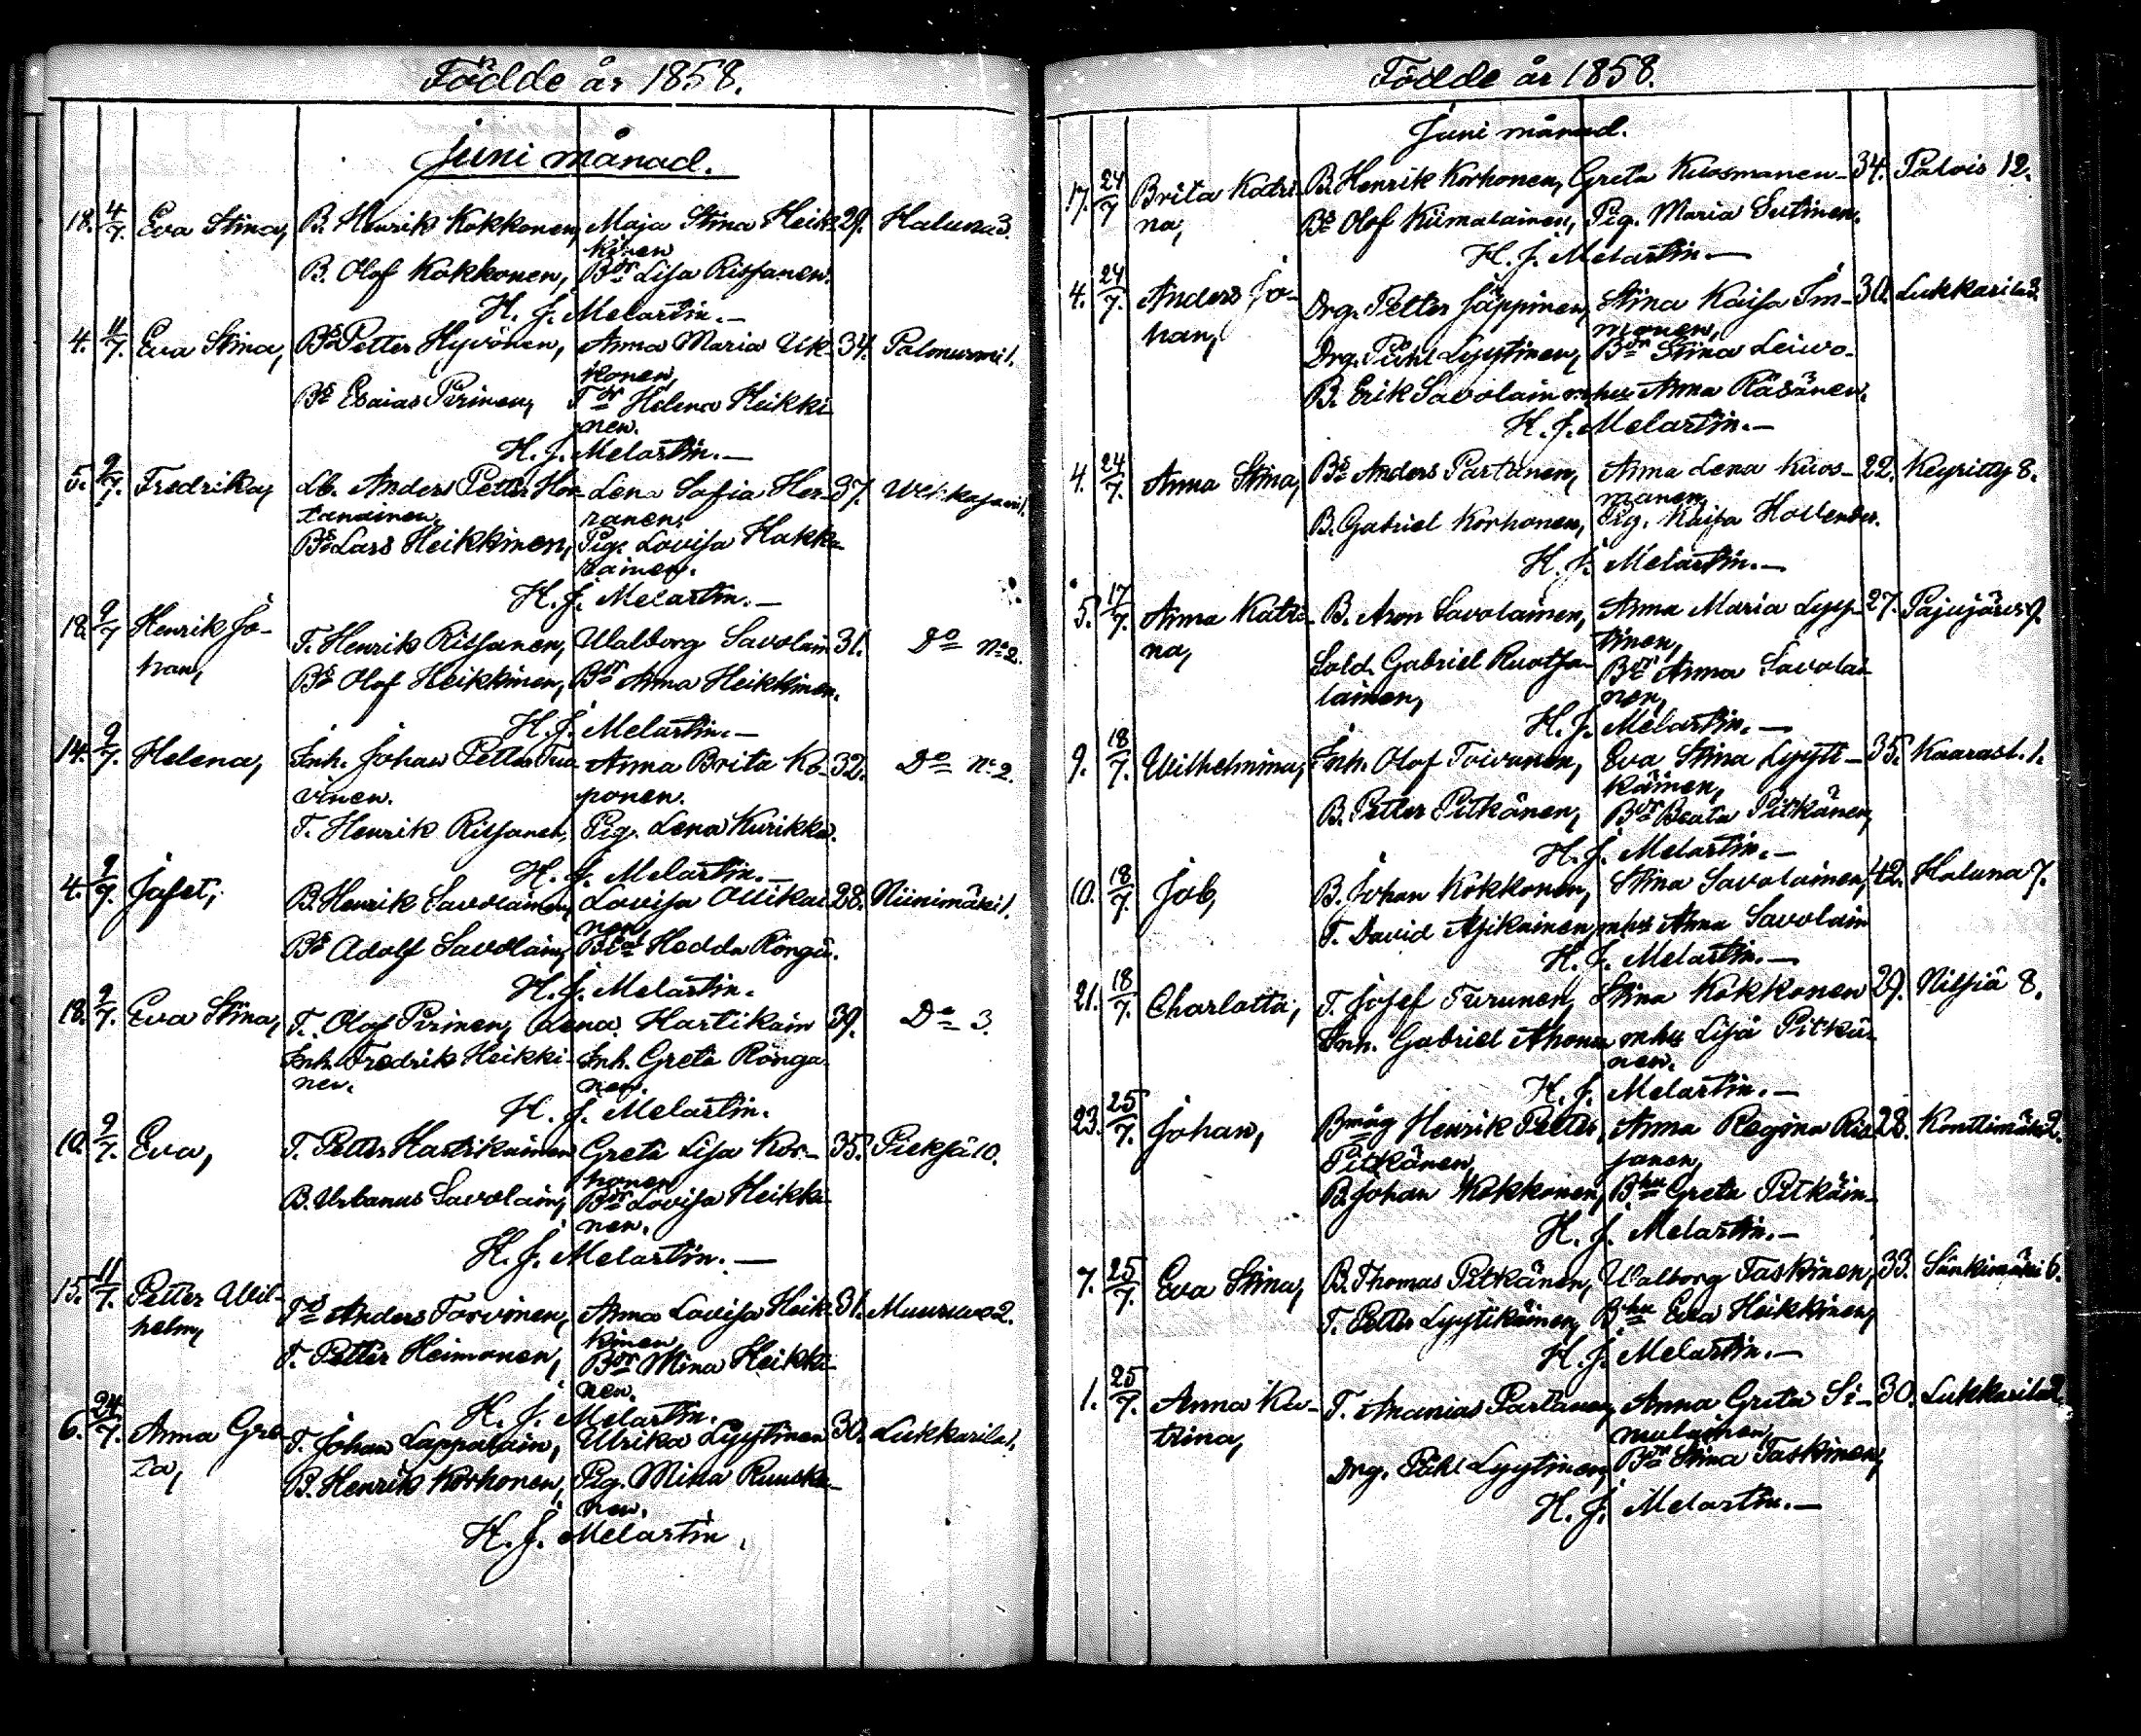 Födde år 1858.
Juni månad.
18. 4/7. Eva Stina, B. Henrik Kokkonen, Maja Stina Heik- 29. Haluna 3.
kinen
B. Olof Kokkonen, Bdr Lisa Rissanen.
H. J. Melartin.—
4. 11/7. Eva Stina, Bs Petter Hyvönen, Anna Maria Uk- 34. Palonurmi 1.
konen,
Bs Esaias Pirinen, Tdr Helena Heikki-
nen.
H. J. Melartin.—
5. 9/7. Fredrika, Lb. Anders Petter Hor- Lena Sofia Her- 37.
tanainen. ranen.
Bs Lars Heikkinen, Pig. Lovisa Hakka-
rainen.
H. J. Melartin.—
18. 9/7 Henrik Jo- T. Henrik Rissanen, Walborg Savolain 31. Do No 2.
han, Bs Olof Heikkinen, Bdr Anna Heikkinen.
H. J. Melartin.—
14. 9/7. Helena, Inh. Johan Petter Tur- Anna Brita Ko- 32. Do No 2.
vinen. ponen.
T. Henrik Rissanen, Pig. Lena Kurikka.
H. J. Melartin.—
4. 9/7. Jafet, B. Henrik Savolainen, Lovisa Ollikai 28. Niinimäki 1.
nen,
Bs Adolf Savolain, Hedda Röngä.
H. J. Melartin.
18. 9/7. Eva Stina, T. Olof Pirinen, Lena Hartikain 39. Do 3.
Inh. Fredrik Heikki- Inh. Greta Rönga-
nen. nen.
H. J. Melartin.
10. 9/7. Eva, T. Petter Hartikainen Greta Lisa Kor- 35. Pieksä 10.
honen
B. Urbanus Savolain, Bdr Lovisa Heikki-
nen.
H. J. Melartin.—
15. 11/7. Petter Wil- Ts Anders Torvinen, Anna Lovisa Heik- 31. Muuruves 2.
helm, kinen
T. Petter Heimonen, Bdr Mina Heikki-
nen.
H. J. Melartin.
6. 24/7. Anna Gre- T. Johan Lappalain, Ulrika Lyytinen 30. Lukkarila 1.
ta, B. Henrik Korhonen, Pig. Mina Ruuska-
nen.
H. J. Melartin.
Födde år 1858.
Juni månad.
17. 24/7 Brita Katri- B. Henrik Korhonen, Greta Kuosmanen- 34. Palois 12.
na, Bs Olof Kiimalainen, Pig. Maria Sutinen.
H. J. Melartin—
4. 24/7. Anders Jo- Drg. Petter Jäppinen, Stina Kaisa Im- 30. Lukkarila 2.
han, monen,
Drg. Påhl Lyytinen, Bdr Stina Leivo-
B. Erik Savolain mhu Anna Räsänen.
H. J. Melartin.—
4. 24/7. Anna Stina, Bs Anders Partanen, Anna Lena Kuos- 22. Keyritty 8.
manen,
B. Gabriel Korhonen, Pig. Kaisa Hollender.
H. J. Melartin.—
5. 17/7. Anna Katri- B. Aron Savolainen, Anna Maria Lyy- 27. Pajujärvi 9.
na, tinen,
Sold. Gabriel Ruotsa- Bdr Anna Savolai-
lainen, nen,
H. J. Melartin.—
9. 18/7. Wilhelmina, Inh. Olof Toivanen, Eva Stina Lyyti- 35. Kaarasl. 1.
käinen,
B. Petter Pitkänen, Bdr Beata Pitkänen,
H. J. Melartin.—
10. 18/7 Job, B. Johan Kokkonen, Stina Savolainen, 42. Haluna 7.
T. David Asikainen, mhu Anna Savolain
H. J. Melartin.—
21. 18/7. Charlotta, T. Josef Turunen, Stina Kokkonen 29. Nilsiä 8.
Inh. Gabriel Ahonen mhu Lisa Pitkä-
nen.
H. J. Melartin.—
23. 25/7. Johan, Bmåg Henrik Petter, Anna Regina Ris- 28. Konttimäki 2.
Pitkänen, sanen,
B. Johan Kokkonen, Bhu Greta Pitkäin-
H. J. Melartin.—
7. 25/7 Eva Stina, B. Thomas Pitkänen, Walborg Taskinen, 33. Sänkimäki 6.
T. Petter Lyytikäinen, Bhu Eva Heikkinen,
H. J. Melartin.—
1. 25/7. Anna Ka- T. Ananias Partanen, Anna Greta Si- 30. Lukkarila 2.
trina, mulainen,
Drg. Påhl Lyytinen, Bdr Stina Taskinen,
H. J. Melartin.—